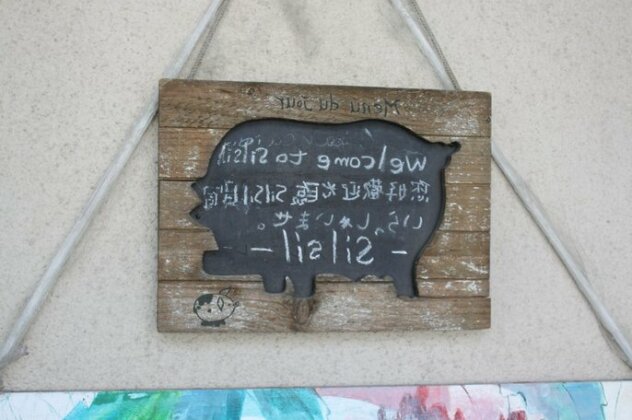 Menu du Jour
Welcome to sisili
您好歡迎光臨SISILI
いらっしゃいませ。
- Sisili -